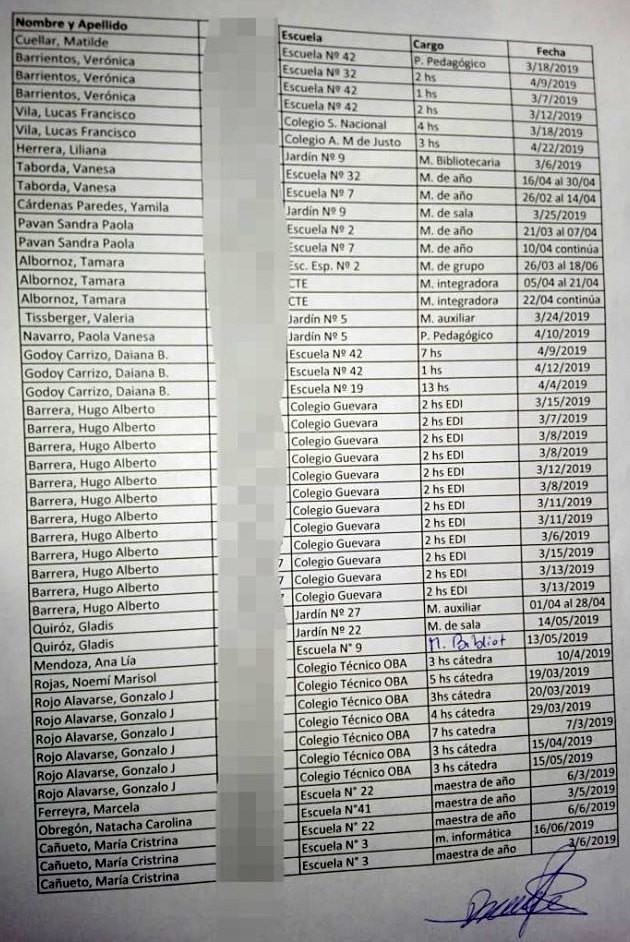 Nombre y Apellido Escuela Cargo Fecha
Cuellar, Matilde Escuela Nº 42 P. Pedagógico 3/18/2019
Barrientos, Verónica Escuela Nº 32 2 hs 4/9/2019
Barrientos, Verónica Escuela Nº 42 1 hs 3/7/2019
Barrientos, Verónica Escuela Nº 42 2 hs 3/12/2019
Vila, Lucas Francisco Colegio S. Nacional 4 hs 3/18/2019
Vila, Lucas Francisco Colegio A. M de Justo 3 hs 4/22/2019
Herrera, Liliana Jardín Nº 9 M. Bibliotecaria 3/6/2019
Taborda, Vanesa Escuela Nº 32 M. de año 16/04 al 30/04
Taborda, Vanesa Escuela Nº 7 M. de año 26/02 al 14/04
Cárdenas Paredes, Yamila Jardín Nº 9 M. de sala 3/25/2019
Pavan Sandra Paola Escuela Nº 2 M. de año 21/03 al 07/04
Pavan Sandra Paola Escuela Nº 7 M. de año 10/04 continúa
Albornoz, Tamara Esc. Esp. Nº 2 M. de grupo 26/03 al 18/06
Albornoz, Tamara CTE M. integradora 05/04 al 21/04
Albornoz, Tamara CTE M. integradora 22/04 continúa
Tissberger, Valeria Jardín Nº 5 M. auxiliar 3/24/2019
Navarro, Paola Vanesa Jardín Nº 5 P. Pedagógico 4/10/2019
Godoy Carrizo, Daiana B. Escuela Nº 42 7 hs 4/9/2019
Godoy Carrizo, Daiana B. Escuela Nº 42 1 hs 4/12/2019
Godoy Carrizo, Daiana B. Escuela Nº 19 13 hs 4/4/2019
Barrera, Hugo Alberto Colegio Guevara 2 hs EDI 3/15/2019
Barrera, Hugo Alberto Colegio Guevara 2 hs EDI 3/7/2019
Barrera, Hugo Alberto Colegio Guevara 2 hs EDI 3/8/2019
Barrera, Hugo Alberto Colegio Guevara 2 hs EDI 3/8/2019
Barrera, Hugo Alberto Colegio Guevara 2 hs EDI 3/12/2019
Barrera, Hugo Alberto Colegio Guevara 2 hs EDI 3/8/2019
Barrera, Hugo Alberto Colegio Guevara 2 hs EDI 3/11/2019
Barrera, Hugo Alberto Colegio Guevara 2 hs EDI 3/11/2019
Barrera, Hugo Alberto Colegio Guevara 2 hs EDI 3/6/2019
Barrera, Hugo Alberto 7 Colegio Guevara 2 hs EDI 3/15/2019
Barrera, Hugo Alberto 7 Colegio Guevara 2 hs EDI 3/13/2019
Barrera, Hugo Alberto 7 Colegio Guevara 2 hs EDI 3/13/2019
Quiróz, Gladis Jardín Nº 27 M. auxiliar 01/04 al 28/04
Quiróz, Gladis Jardín Nº 22 M. de sala 14/05/2019
Mendoza, Ana Lía Escuela N° 9 M. Bibliot 13/05/2019
Rojas, Noemí Marisol Colegio Técnico OBA 3 hs cátedra 10/4/2019
Rojo Alavarse, Gonzalo J Colegio Técnico OBA 5 hs cátedra 19/03/2019
Rojo Alavarse, Gonzalo J Colegio Técnico OBA 3hs cátedra 20/03/2019
Rojo Alavarse, Gonzalo J Colegio Técnico OBA 4 hs cátedra 29/03/2019
Rojo Alavarse, Gonzalo J Colegio Técnico OBA 7 hs catedra 7/3/2019
Rojo Alavarse, Gonzalo J Colegio Técnico OBA 3 hs cátedra 15/04/2019
Rojo Alavarse, Gonzalo J Colegio Técnico OBA 3 hs cátedra 15/05/2019
Ferreyra, Marcela Escuela N° 22 maestra de año 6/3/2019
Obregón, Natacha Carolina Escuela N°41 maestra de año 3/5/2019
Cañueto, María Cristrina Escuela N° 22 maestra de año 6/6/2019
Cañueto, María Cristrina Escuela N° 3 m. informática 16/06/2019
Cañueto, María Cristrina Escuela N° 3 maestra de año 3/6/2019